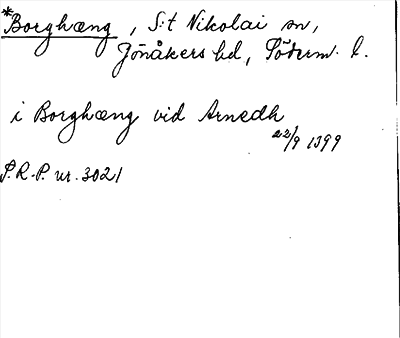 *Borghæng, S:t Nikolai sn,
Jönåkers hd, Söderm. l.
i Borghæng vid Arnedh
22/9 1399
S.R.P. nr. 3021